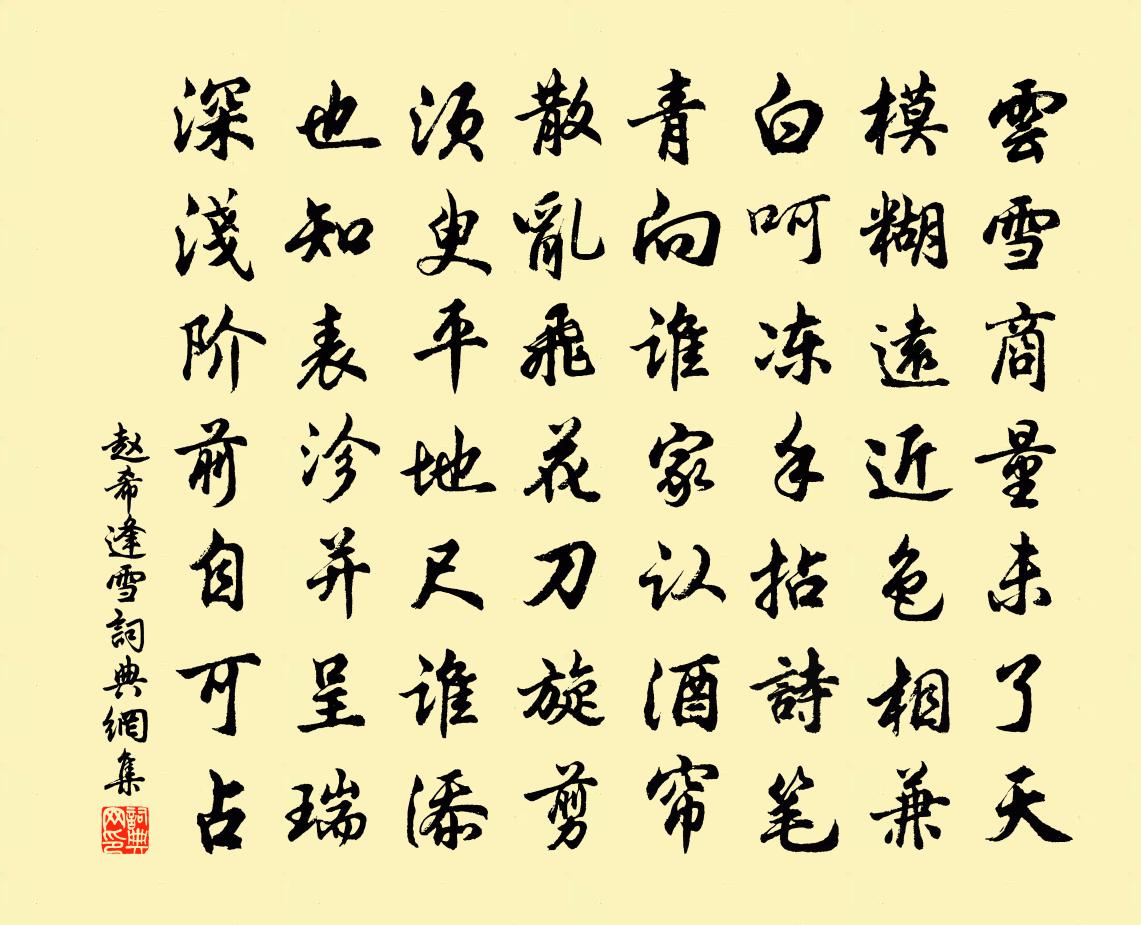 雲雪商量未了天
模糊遠近色相兼
白呵冻手拈詩笔
青向谁家认酒帘
散亂飛花刀旋剪
须叟平地尺谁添
也知表沴并呈瑞
深淺阶前自可占
赵希逢雪詞典網集
詞典网印